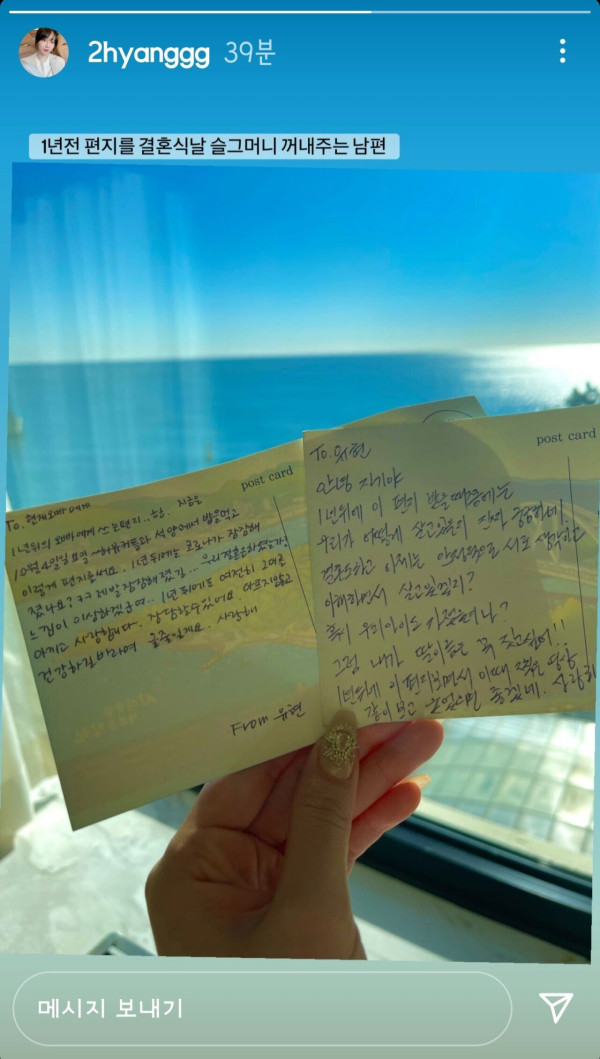 2hyanggg 39분
1년전 편지를 결혼식날 슬그머니 꺼내주는 남편
post card
To. 현제오빠에게
1년뒤의 오빠에게 쓰는편지.. 지금은
10월 4일날 저녁 커플과 석양에서 밥을먹고
이렇게 편지를써요. 1년뒤에는 코로나가 잠잠해
졌나요? ㅋㅋ 제발 잠잠해졌길... 우리결혼은하였는가?
느낌이 이상하겠군여.. 1년뒤에도 여전히 그대를
아끼고 사랑합니다. 장담할수있어요. 아프지않고
건강하길바라며 글줄일게요. 사랑해
From 유현
post card
To. 유현
안녕 자기야
1년뒤에 이 편지 받을때쯤에는
우리가 어떻게 살고있을지 진짜 궁금하네.
결혼도하고 이제는 안정적으로 서로 생각하고
아껴하면서 살고있겠지?
혹시 우리아이도 가졌으려나?
그럼 내가 딸이름은 꼭 짓고싶어!!
1년뒤에 이편지보면서 이때 찍은 영상
같이보고 있었으면 좋겠네. 사랑해
메시지 보내기